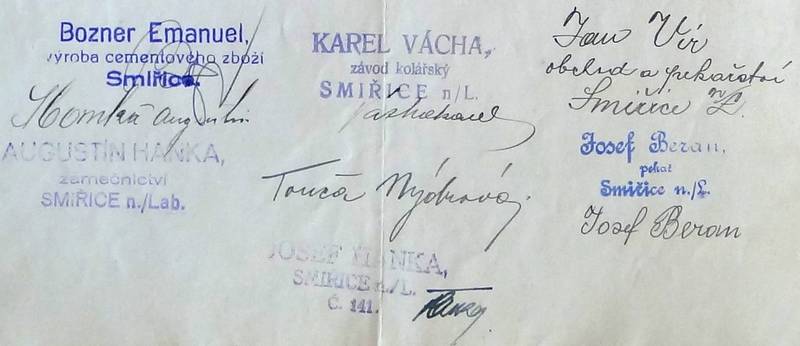 Bozner Emanuel,
výroba cementového zboží
Smiřice.
Augustin
AUGUSTÍN HANKA,
zámečnictví
SMIŘICE n./Lab.
KAREL VÁCHA,
závod kolářský
SMIŘICE n/L.
Vácha Karel
Nýdrová
JOSEF HANKA,
SMIŘICE n./L.
Č. 141.
Hanka
Jan Vír
obchod a pekařství
Smiřice n/L.
Josef Beran,
pekař
Smiřice n./L.
Josef Beran